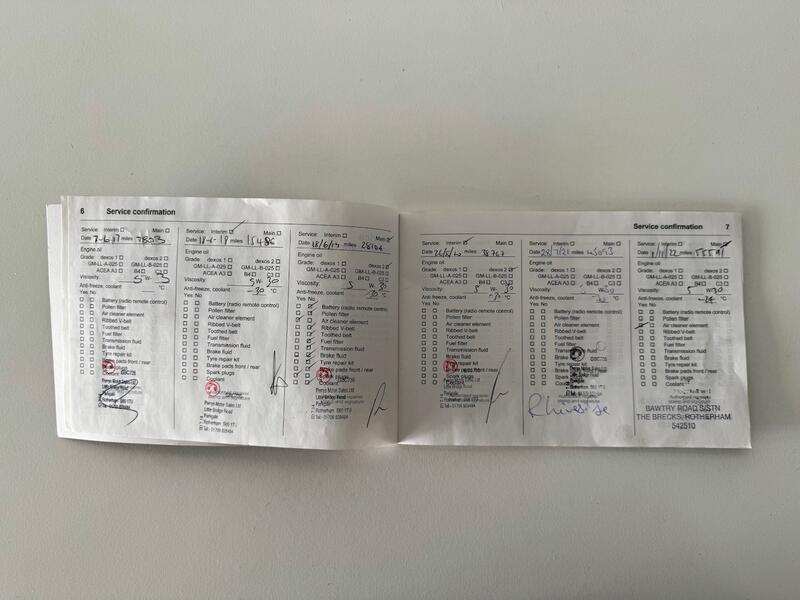 6 Service confirmation
Service: Interim Main
Date 7-6-17 miles 7803
Engine oil
Grade: dexos 1 dexos 2
GM-LL-A-025 GM-LL-B-025
ACEA A3 B4 C3
Viscosity: 5 W-
Anti-freeze, coolant °C
Yes No
Battery (radio remote control)
Pollen filter
Air cleaner element
Ribbed V-belt
Toothed belt
Fuel filter
Transmission fluid
Brake fluid
Tyre repair kit
Brake pads front / rear
Spark plugs
Coolant
Service: Interim Main
Date miles 15486
Engine oil
Grade: dexos 1 dexos 2
GM-LL-A-025 GM-LL-B-025
ACEA A3 B4 C3
Viscosity: 5 W- 30
Anti-freeze, coolant -30 °C
Yes No
Battery (radio remote control)
Pollen filter
Air cleaner element
Ribbed V-belt
Toothed belt
Fuel filter
Transmission fluid
Brake fluid
Tyre repair kit
Brake pads front / rear
Spark plugs
Coolant
Perrys Motor Sales Ltd
Little Bridge Road
Parkgate
Rotherham
Service: Interim Main
Date 18/6/19 miles 28104
Engine oil
Grade: dexos 1 dexos 2
GM-LL-A-025 GM-LL-B-025
ACEA A3 B4 C3
Viscosity: 5 W- 30
Anti-freeze, coolant -30 °C
Yes No
Battery (radio remote control)
Pollen filter
Air cleaner element
Ribbed V-belt
Toothed belt
Fuel filter
Transmission fluid
Brake fluid
Tyre repair kit
Brake pads front / rear
Spark plugs
Coolant
Perrys Motor Sales Ltd
Little Bridge Road
Parkgate
Rotherham
Service confirmation 7
Service: Interim Main
Date miles 38767
Engine oil
Grade: dexos 1 dexos 2
GM-LL-A-025 GM-LL-B-025
ACEA A3 B4 C3
Viscosity: 5 W- 30
Anti-freeze, coolant °C
Yes No
Battery (radio remote control)
Pollen filter
Air cleaner element
Ribbed V-belt
Toothed belt
Fuel filter
Transmission fluid
Brake fluid
Tyre repair kit
Brake pads front / rear
Spark plugs
Coolant
Perrys Motor Sales Ltd
Little Bridge Road
Parkgate
Rotherham
Service: Interim Main
Date 28/7/21 miles 45053
Engine oil
Grade: dexos 1 dexos 2
GM-LL-A-025 GM-LL-B-025
ACEA A3 B4 C3
Viscosity: W-
Anti-freeze, coolant °C
Yes No
Battery (radio remote control)
Pollen filter
Air cleaner element
Ribbed V-belt
Toothed belt
Fuel filter
Transmission fluid
Brake
Tyre repair kit
Brake pads front / rear
Spark plugs
Coolant
Service: Interim Main
Date 1/11/22 miles
Engine oil
Grade: dexos 1 dexos 2
GM-LL-A-025 GM-LL-B-025
ACEA A3 B4 C3
Viscosity: 5 W- 30
Anti-freeze, coolant -24 °C
Yes No
Battery (radio remote control)
Pollen filter
Air cleaner element
Ribbed V-belt
Toothed belt
Fuel filter
Transmission fluid
Brake fluid
Tyre repair kit
Brake pads front / rear
Spark plugs
Coolant
BAWTRY ROAD S/STN
THE BRECKS, ROTHERHAM
542510